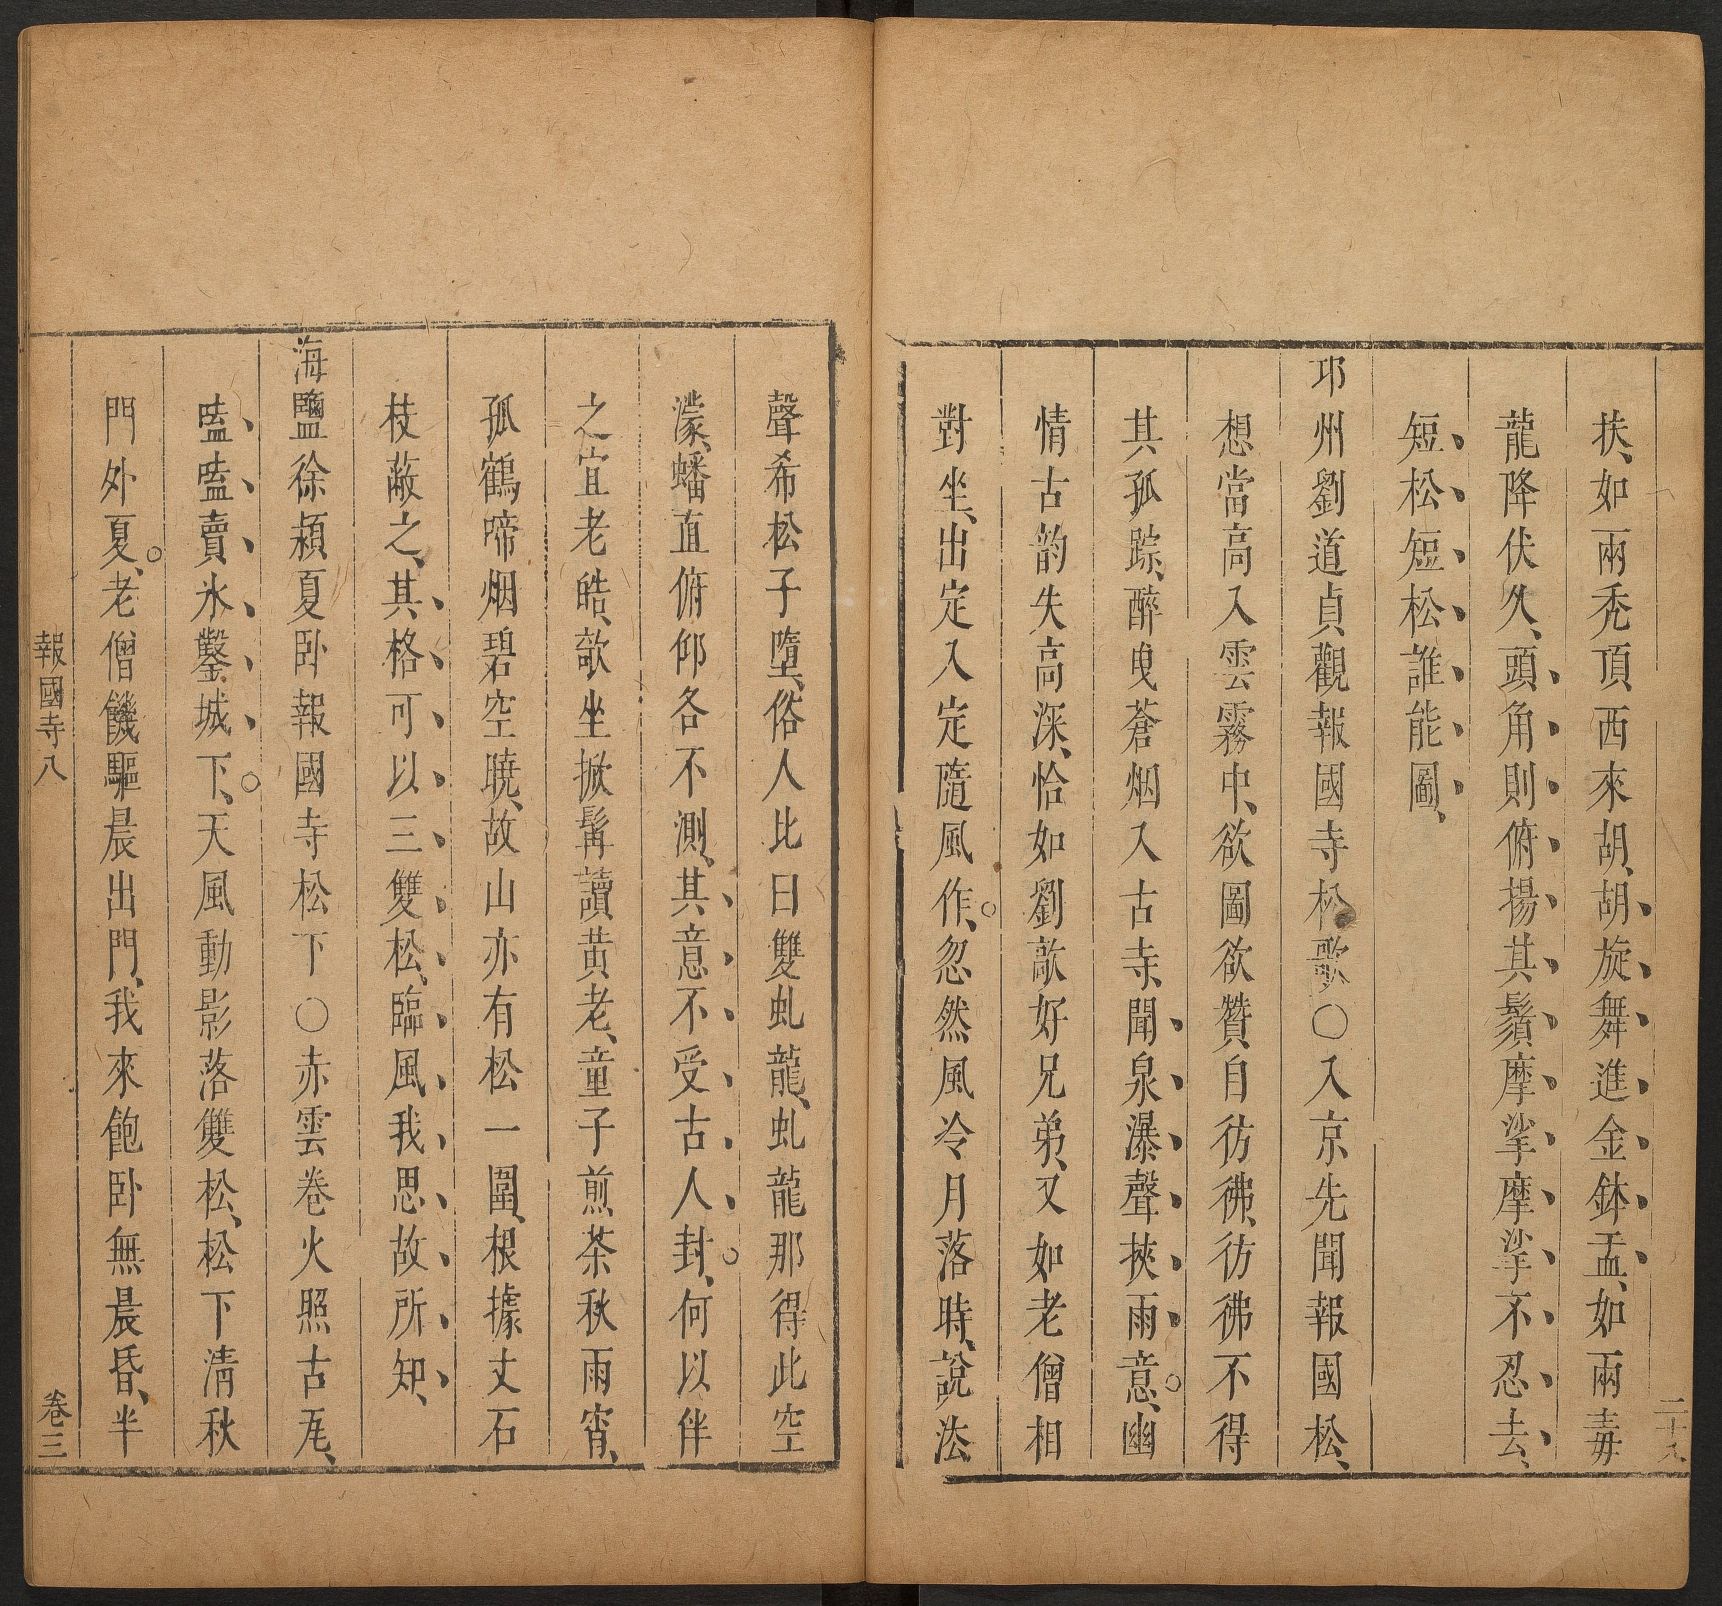 扶、如兩禿頂、西來胡、胡旋舞進金鉢盂、如兩毒
龍降伏久、頭角則俯揚其鬚、摩挲摩挲不忍去、
短松短松誰能圖、
邛州劉道貞觀報國寺松歌○入京先聞報國松、
想當高入雲霧中、欲圖欲贊自彷彿、彷彿不得
其孤踪、醉曳蒼烟入古寺、聞泉瀑聲挾雨意、幽
情古韵失高深、恰如劉敞好兄弟、又如老僧相
對坐、出定入定隨風作、忽然風冷月落時、說法
二十九
聲希松子墮、俗人比曰雙虬龍、虬龍那得此空
濛、蟠直俯仰各不測、其意不受古人封、何以伴
之宜老皓、欹坐掀髯讀黃老、童子煎茶秋雨宵、
孤鶴啼烟碧空曉、故山亦有松一圍、根據丈石
枝蔽之、其格可以三雙松、臨風我思故所知、
海鹽徐潁夏臥報國寺松下○赤雲卷火照古厐、
嗑嗑賣氷鑿城下、天風動影落雙松、松下清秋
門外夏、老僧饑驅晨出門、我來飽臥無晨昏、半
報國寺八
卷三